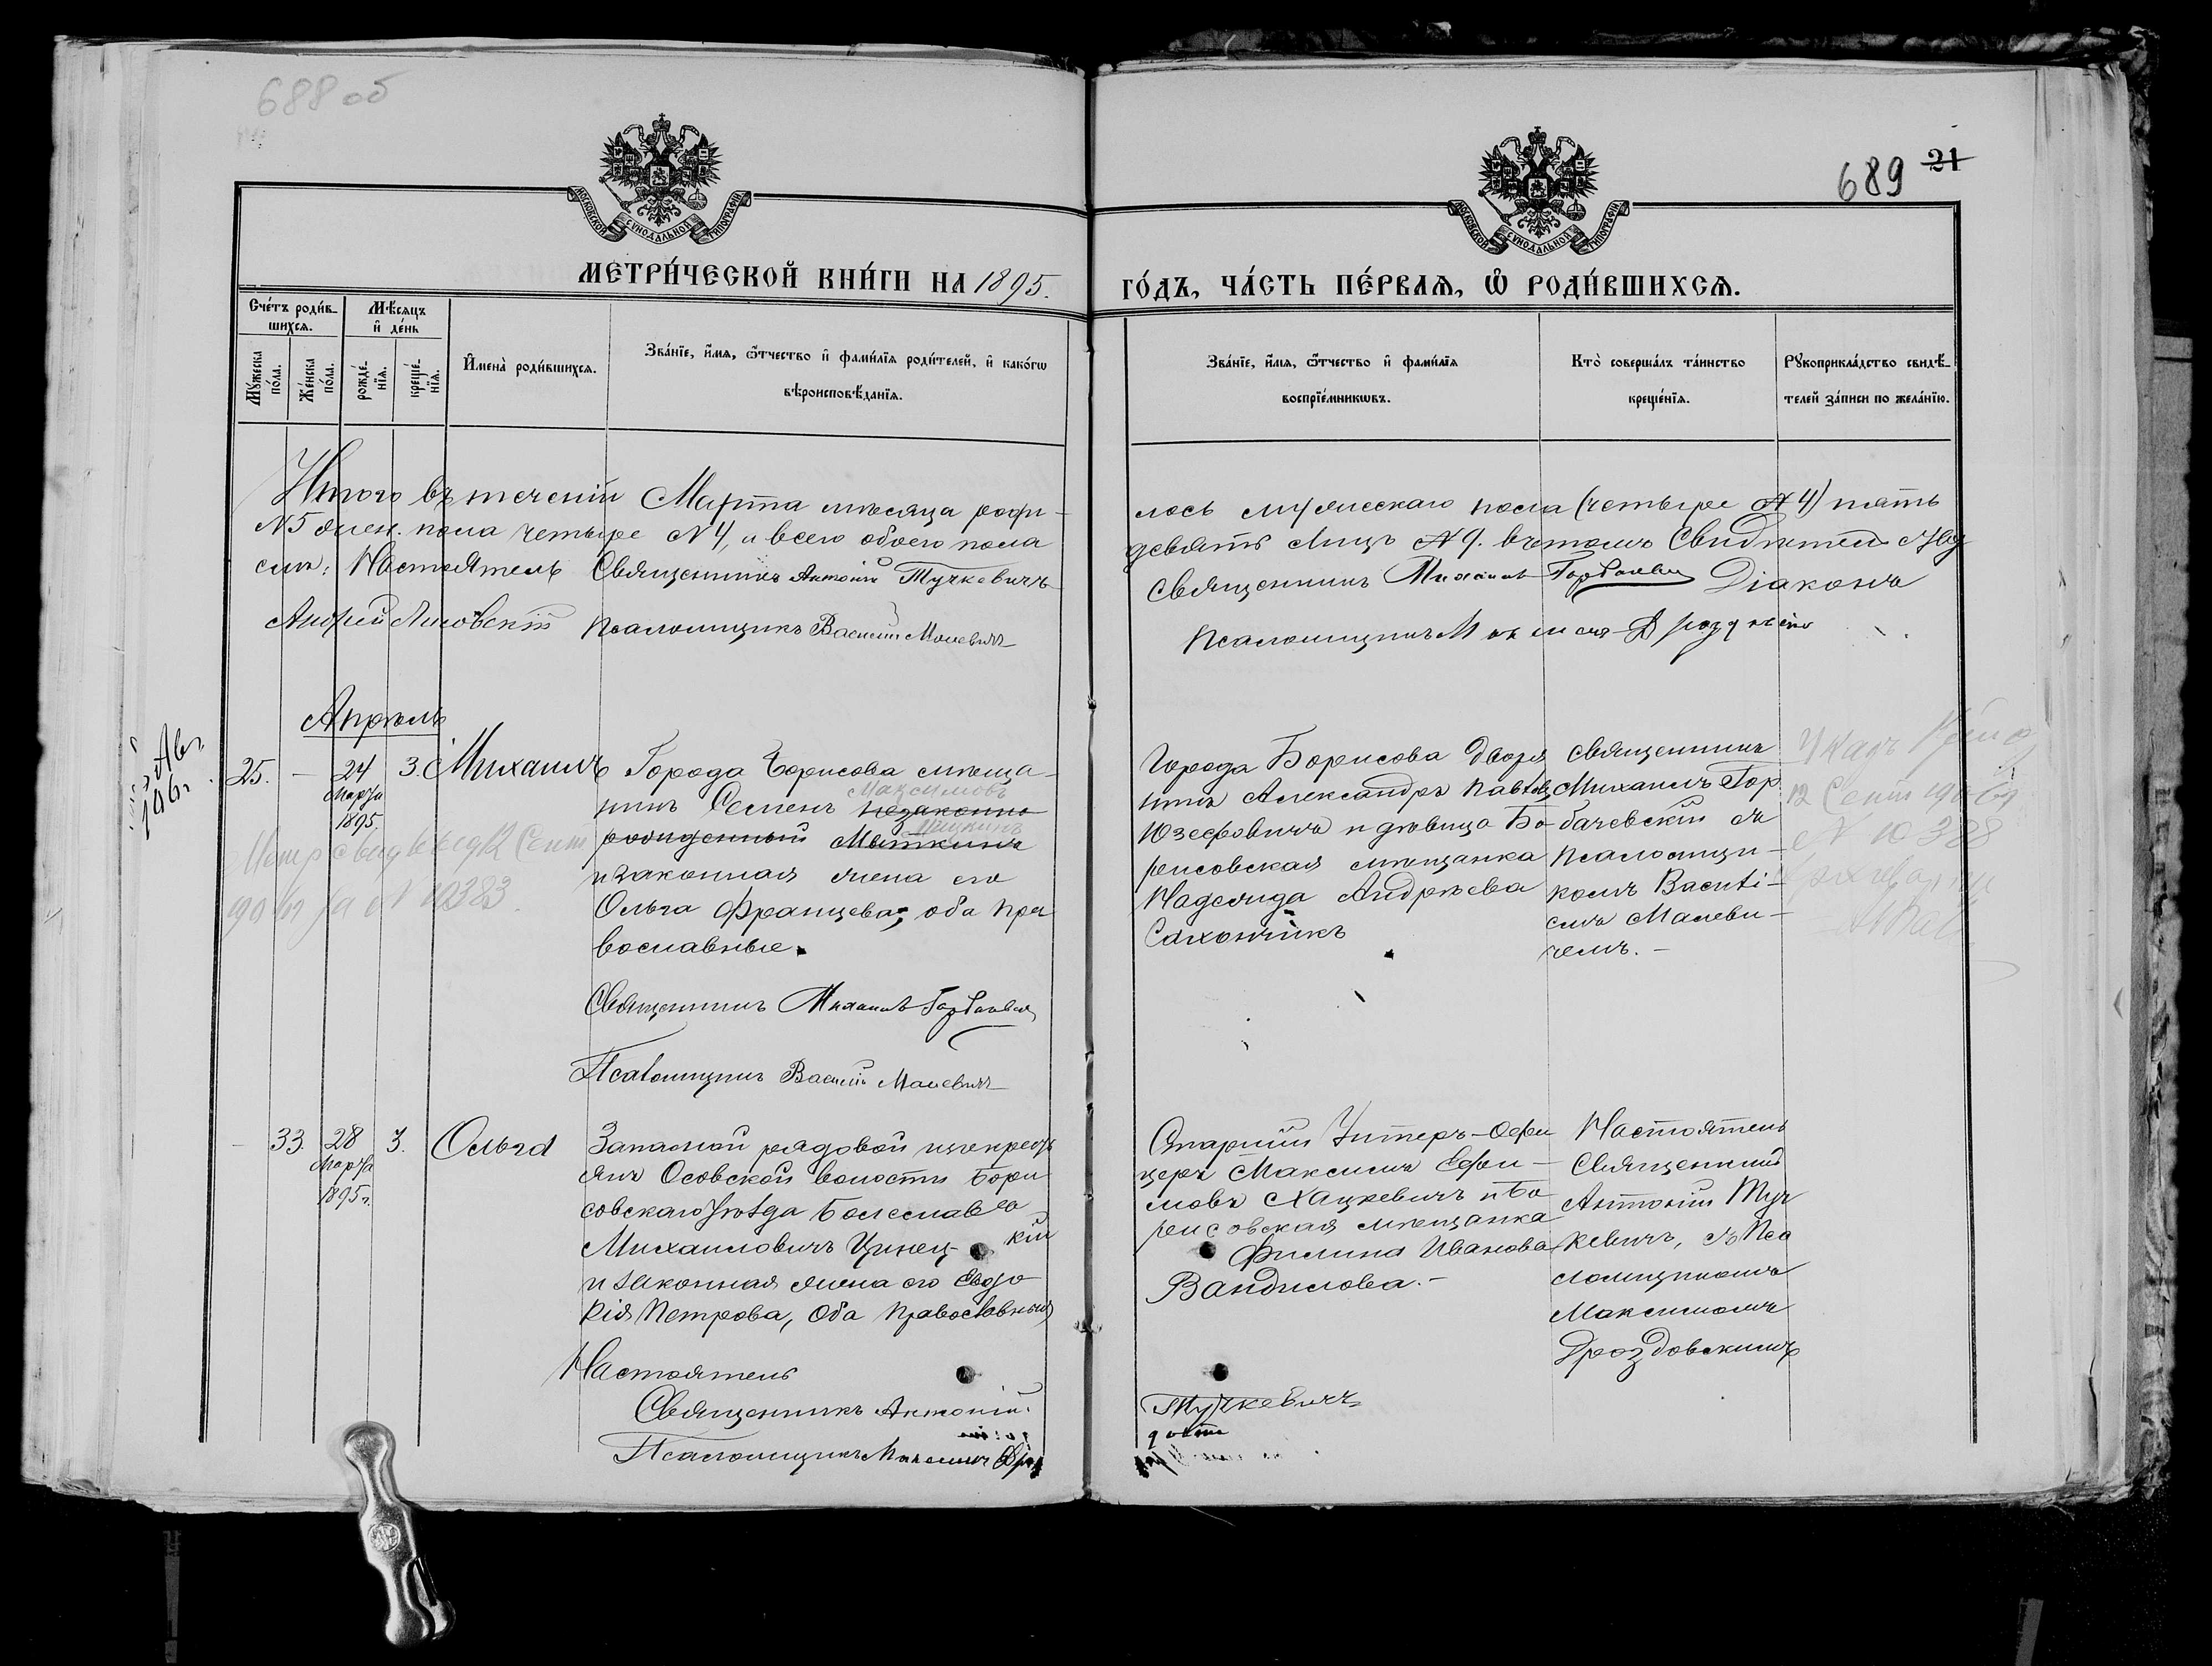 688 об
689 21
МОСКОВСКОЙ СѴНОДАЛЬНОЙ ТИПОГРАФІИ
МОСКОВСКОЙ СѴНОДАЛЬНОЙ ТИПОГРАФІИ
МЕТРИ́ЧЕСКОЙ КНИ́ГИ НА 1895.
ГО́ДЪ, ЧА́СТЬ ПЕ́РВАѦ, Ѽ РОДИ́ВШИХСѦ.
Сче́тъ роди́в-
шихсѧ.
Мѣ́сѧцъ
и҆ де́нь
Мꙋ́жеска
по́ла.
Же́нска
по́ла.
рожде́-
нїѧ.
креще́-
нїѧ.
И҆мена̀ роди́вшихсѧ.
Зва́нїе, и҆́мѧ, ѻ҆́тчество и҆ фами́лїѧ роди́телей, и҆ како́гѡ
вѣроисповѣ́данїѧ.
Зва́нїе, и҆́мѧ, ѻ҆́тчество и҆ фами́лїѧ
воспрїе́мникѡвъ.
Кто̀ соверша́лъ та́инство
креще́нїѧ.
Рꙋкоприкла́дство свидѣ́-
телей за́писи по жела́нїю.
Итого въ теченіи Марта мѣсяца роди-
N5 женс. пола четыре N4, и всего обоего пола
емъ: Настоятель Священникъ Антоній Тучкевичъ
Андрей псаломщикъ Василій Малевичъ
лось мужескаго пола (четыре N 4) пять
девять лицъ N 9. въ томъ Свидѣтель
Священникъ Михаилъ Горбачевскій Діаконъ
псаломщикъ Максимъ Дроздовскій
Апрѣль
25. — 24 3. Михаилъ
Марта
1895.
Города Борисова мѣща-
Максимовъ
нинъ Семенъ незаконно
рожденный Мыткинъ
и законная жена его
Ольга Францева, оба пра
вославные.
Священникъ Михаилъ Горбачевскій
Псаломщикъ Василій Малевичъ
Города Борисова дворя
нинъ Александръ Павловъ
Юзефовичъ и дѣвица Бо-
рисовская мѣщанка
Надежда Андрѣева
Сахончикъ
священникъ
Михаилъ Гор
бачевскій съ
псаломщи-
комъ Васи&#1110;-
емъ Малеви-
чемъ. —
12 Сент
N 10388
12 Сент
за N 10383.
— 33. 28 3. Ольга
Марта
1895 г.
Запасной рядовой изъ кресть
янъ Осовской волости Бори
совскаго уѣзда Болеславъ
Михаиловичъ Цинец- кій
и законная жена его Евдо
кія Петрова, оба православныя
Настоятель
Священникъ Антоній
Псаломщикъ Максимъ Дроз
Старшій Унтеръ-Офи
церъ Максимъ Ефи-
мовъ Хацкевичъ и Бо
рисовская мѣщанка
Филина Иванова
Вандилова. —
Настоятель
Священникъ
Антоній Туч
кевичъ, съ Пса
ломщикомъ
Максимомъ
Дроздовскимъ
Тучкевичъ